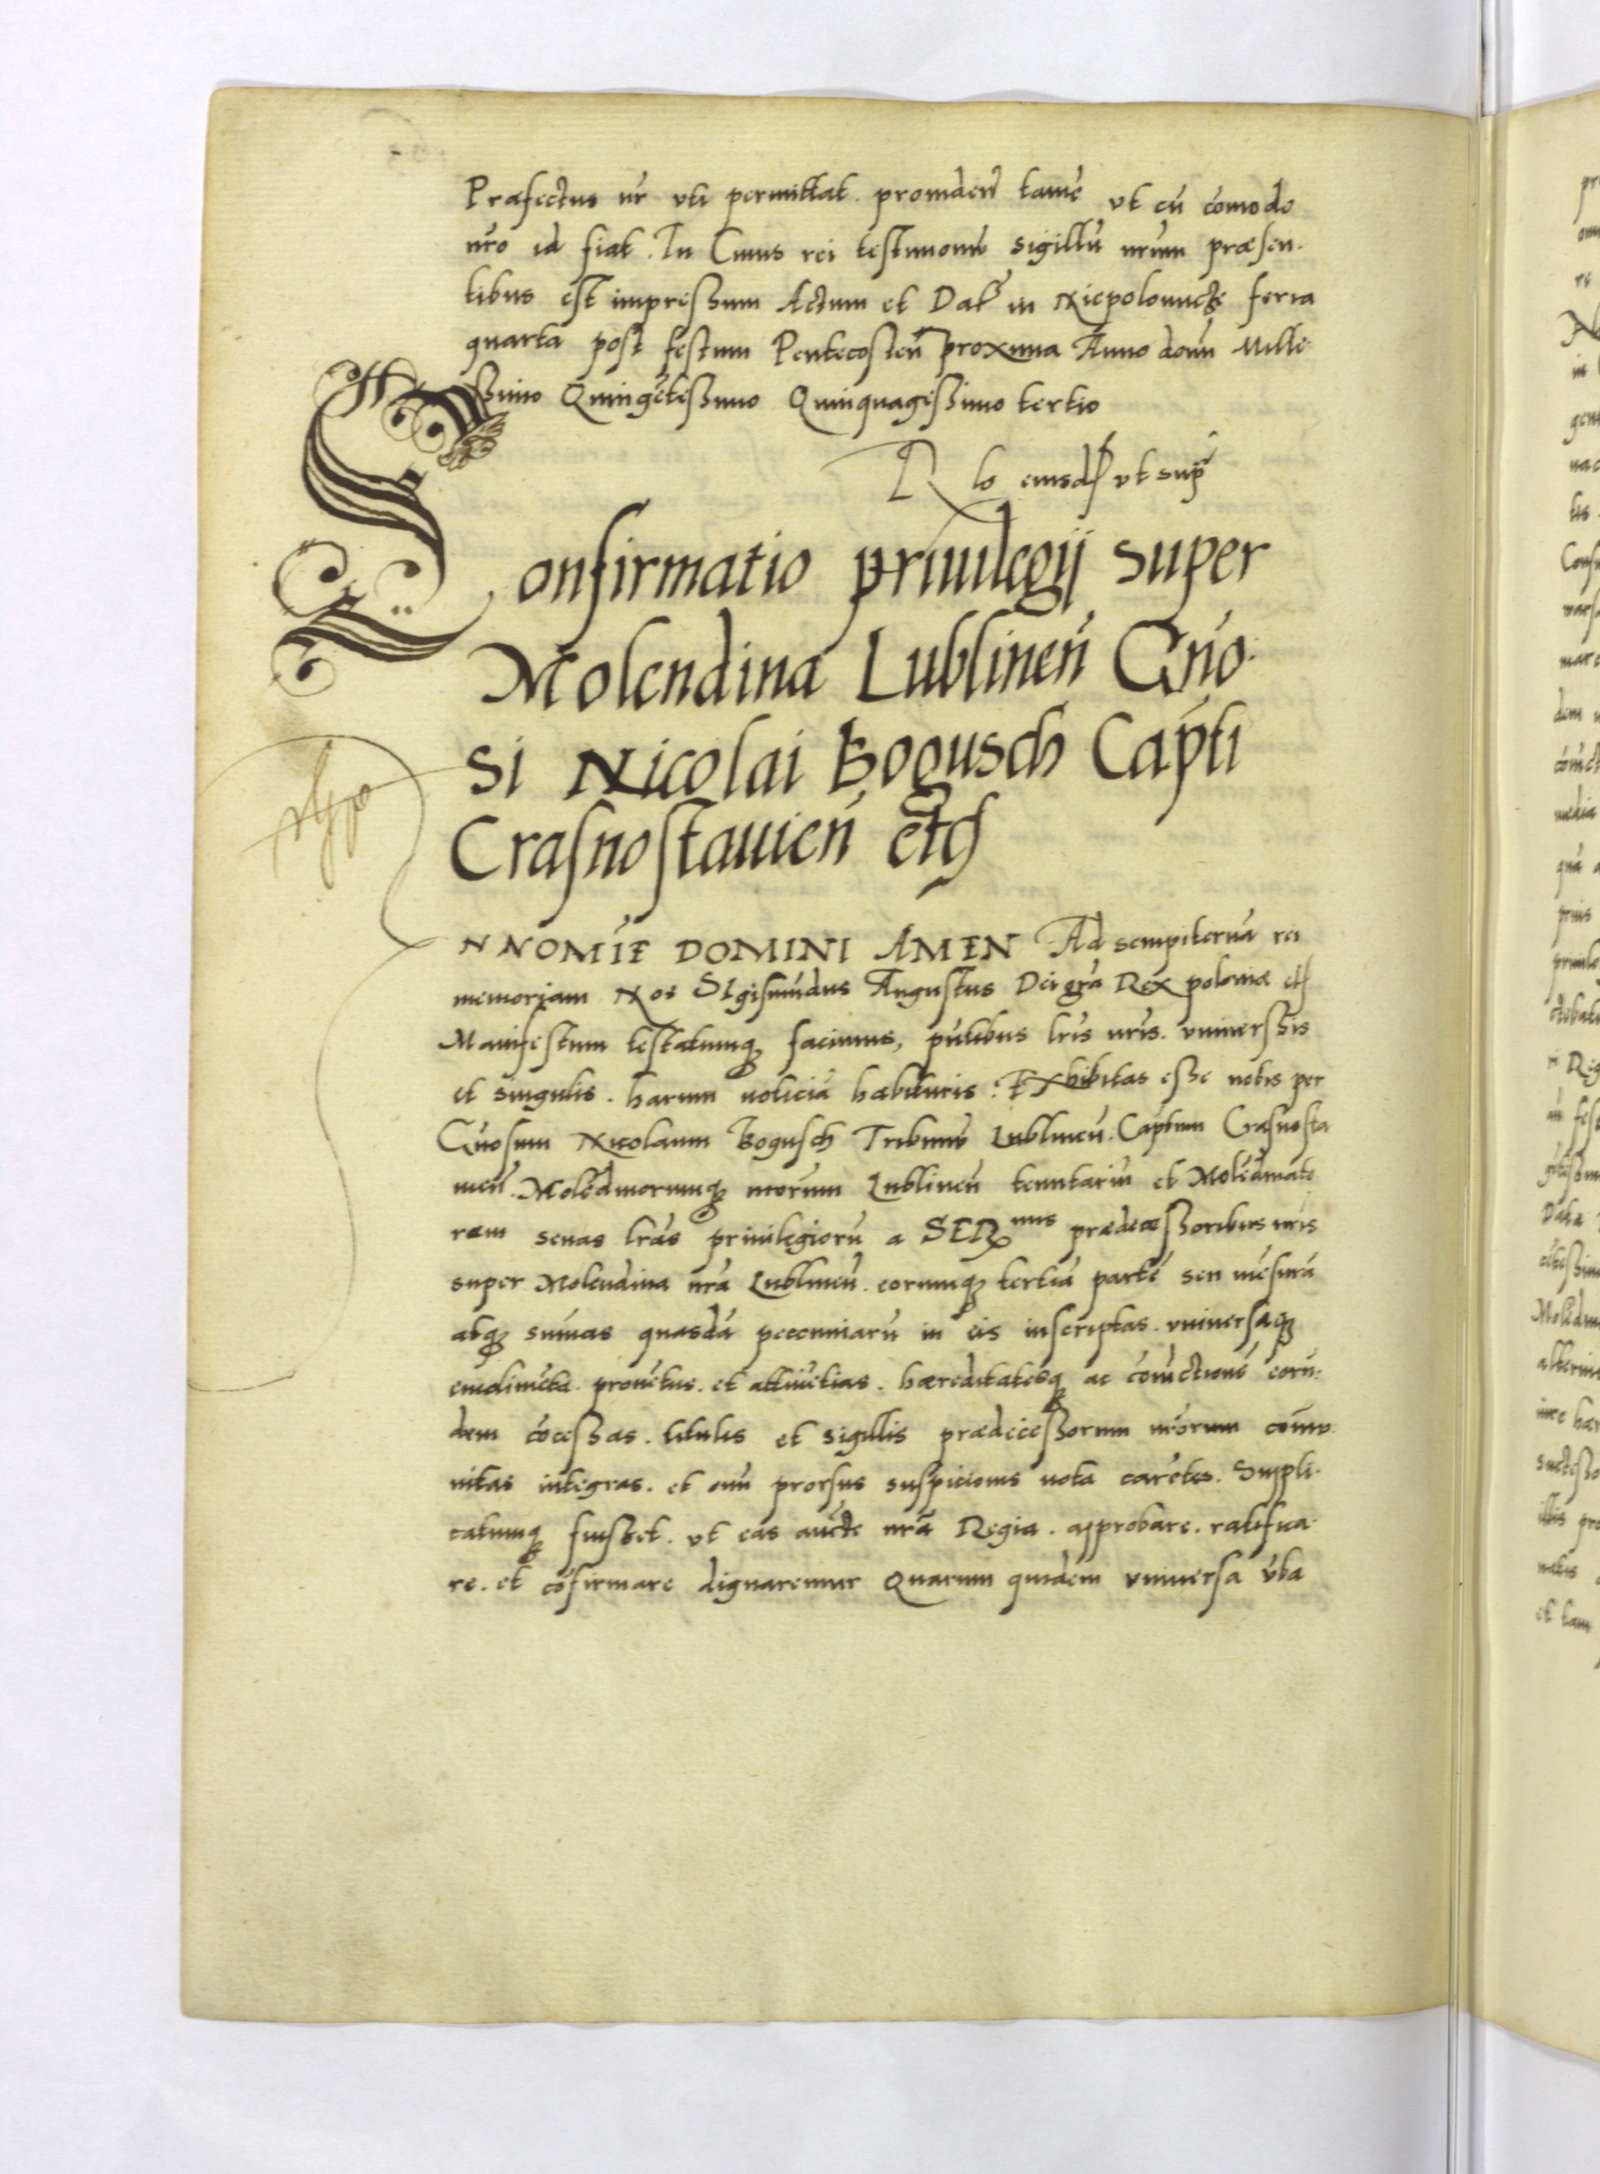 Præfectus nr̃ vti permittat. prouideñ tamē vt cū cōmodo
nr̃o id fiat. In Cuius rei testimoniū sigillū nr̃um præsen-
tibus est impressum Actum et Dat̃ in Niepolomicze feria
quarta post festum Pentecosteñ proxima Anno domi͂ Mille
ssimo Quingētessimo Quinquagessimo tertio
R lo eiusdꝫ vt sup̃
Confirmatio priuilegij super
Molendina Lublineñ Gn̄o-
si Nicolai Bogusch Cap̃ti
Crasnostauieñ etcꝫ
N NOMĪE DOMINI AMEN Ad sempiternā rei
memoriam Nos SIgismūdus Augustus Dei grã Rex poloniæ etꝫ
Manifestum testatumqꝫ facimus, pñtibus lr̃is nr̃is. vniuerssis
et singulis. harum noticiā habituris: EXhibitas esse nobis per
Gn̄osum Nicolaum Bogusch Tribunū Lublineñ. Cap̃tum Crasnosta
uieñ. Molēdinorumqꝫ nr̃orum Lublineñ tenutariū et Molēdinato
rem senas lr̃as priuilegiorū a SERmis prædecessoribus nr̃is
super Molendina nr̃a Lublineñ. eorumqꝫ tertiā partē seu mēsurā
atqꝫ sum̃as quasdā peccuniarū in eis inscriptas. vniuersaqꝫ
emolimēta. prouētus. et attinētias. hæreditatesqꝫ ac cōiūctionē eorū-
dem cōcessas. titulis et sigillis prædecessorum nr̃orum com̃u-
nitas integras. et om̃i prorsus suspicionis nota carētes. Suppli-
catumqꝫ fuisset. vt eas aucte nr̃a Regia. approbare. ratifica-
re. et cōfirmare dignaremur Quarum quidem vniuersa v̄ba